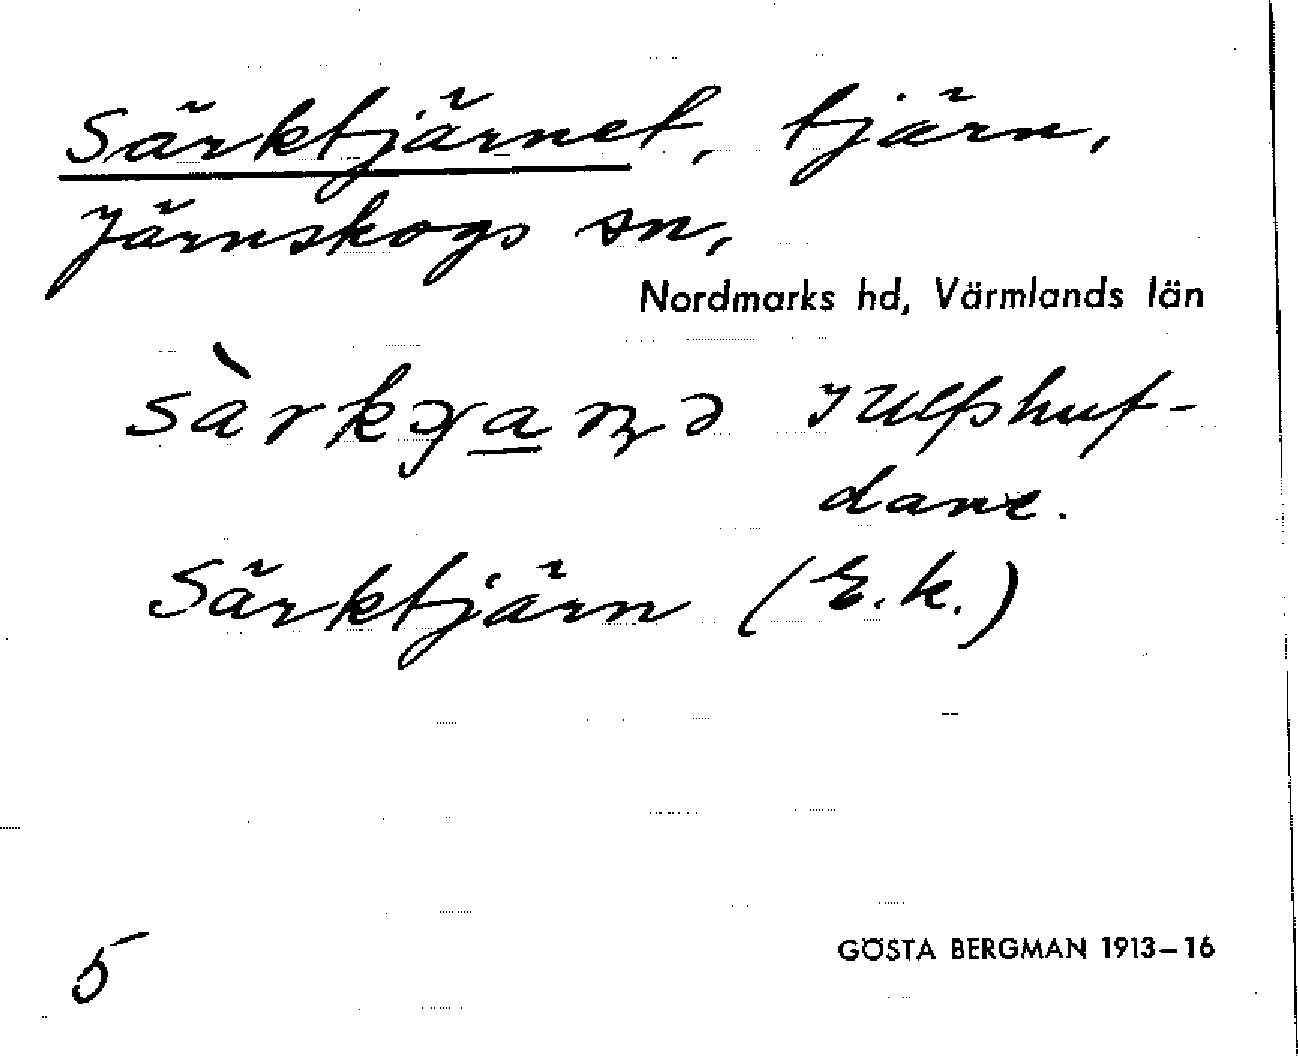 Särktjärnet, tjärn,
Järnskogs sn,
Nordmarks hd, Värmlands län
Särktjärn (E.k.)
5
GÖSTA BERGMAN 1913–16